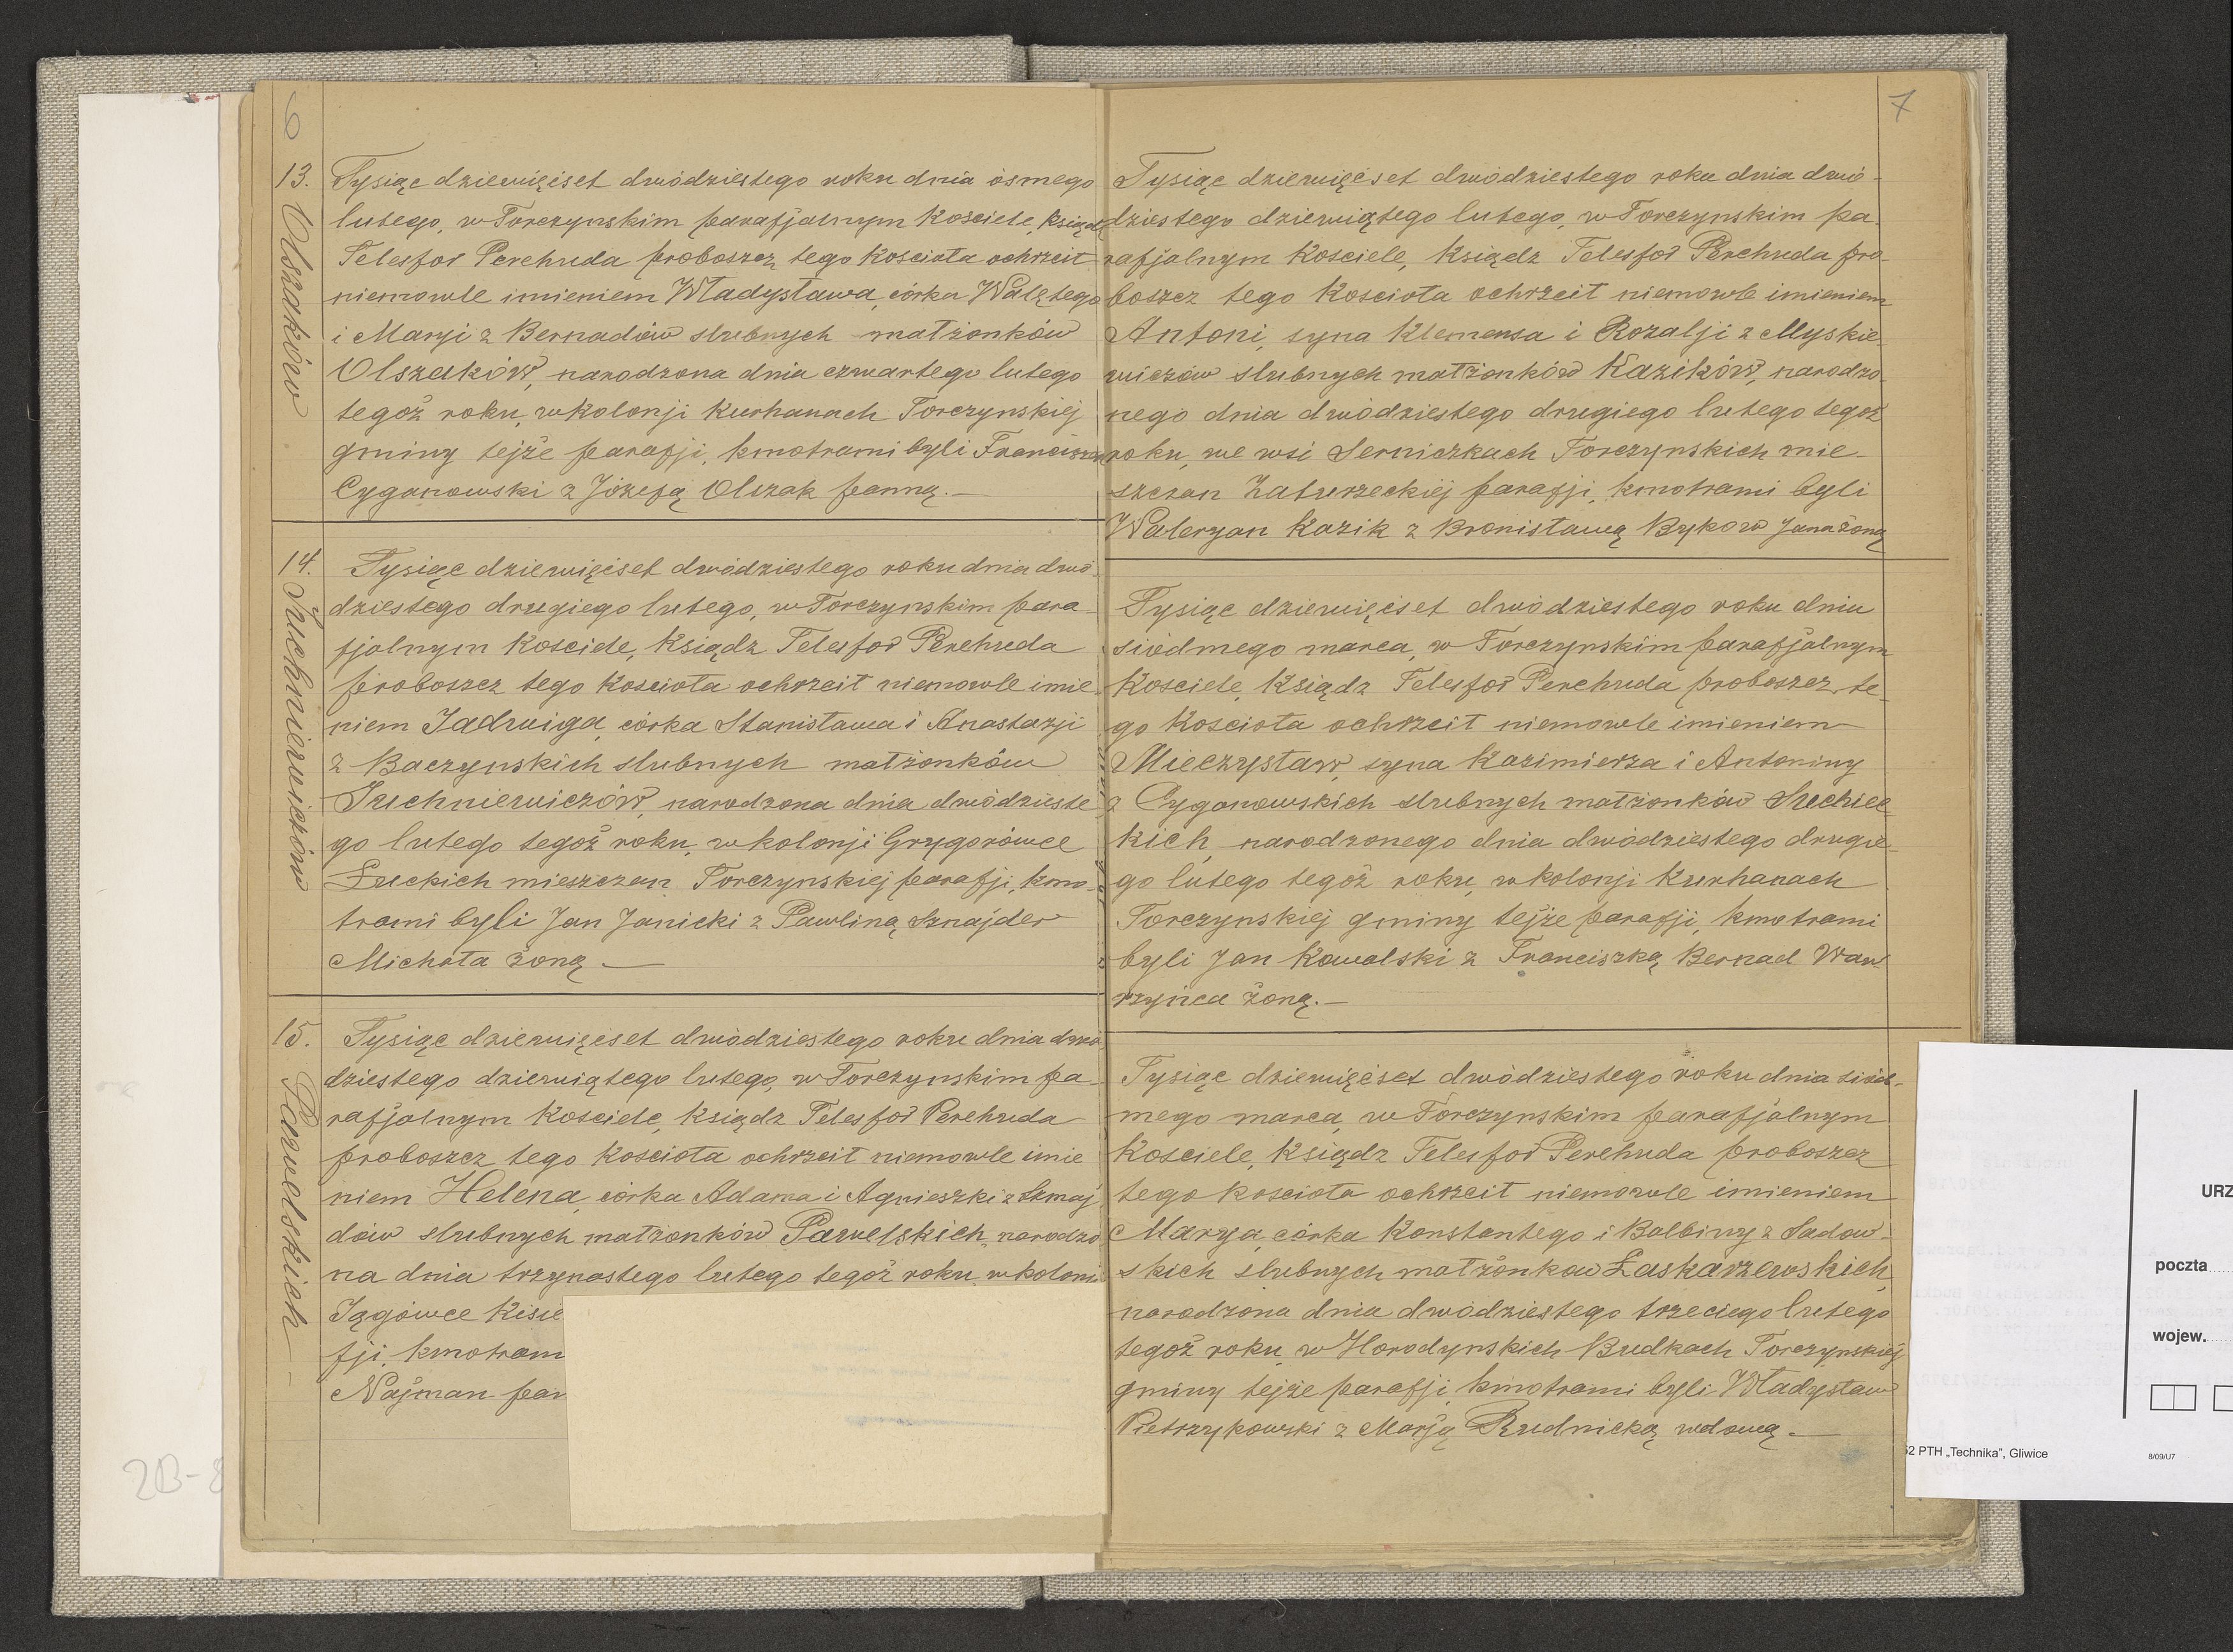 6
13.
Olszaków
Tysiąc dziewięćset dwódziestego roku dnia ósmego
lutego, w Torczynskim parafjalnym Kosciele, Ksiądz
Telesfor Perehuda proboszcz tego Kosciola ochrzcił
niemowle imieniem Władysława, córka Walętego
i Maryi z Bernadów slubnych małżonków
Olszaków, narodzona dnia czwartego lutego
tegoż roku, w kolonji Kurhanach Torczynskiej
gminy tejże parafji, kmotrami byli Franciszek
Cyganowski z Józefą Olszak panną.—
14.
Juchniewiczów
Tysiąc dziewięćset dwódziestego roku dnia dwó-
dziestego drugiego lutego, w Torczynskim para-
fjalnym Kosciele, Ksiądz Telesfor Perehuda
proboszcz tego Kosciola ochrzcił niemowle imie-
niem Jadwiga, córka Stanisława i Anastazji
z Baczynskich slubnych małżonków
Juchniewiczów, narodzona dnia dwódzieste-
go lutego tegoż roku, w kolonji Grygorówce
Łuckich mieszczan Torczynskiej parafji, kmo-
trami byli Jan Janicki z Pawliną Sznajder
Michała żoną —
15.
Pawelskich —
Tysiąc dziewięćset dwódziestego roku dnia dwó-
dziestego dziewiątego lutego, w Torczynskim pa-
rafjalnym Kosciele, Ksiądz Telesfor Perehuda
proboszcz tego Kosciola ochrzcił niemowle imie
niem Helena, córka Adama i Agnieszki z Szmaj
dów slubnych małżonków Pawelskich, narodzo
na dnia trzynastego lutego tegoż roku, w kolonii
Jągówce Kisie
fji, kmotram
Najman pan
7
Tysiąc dziewięćset dwódziestego roku dnia dwó-
dziestego dziewiątego lutego, w Torczynskim pa-
rafjalnym Kosciele, Ksiądz Telesfor Perehuda pro-
boszcz tego Kosciola ochrzcił niemowle imieniem
Antoni, syna Klemensa i Rozalji z Myskie-
wiczów slubnych małżonków Kazików, narodzo-
nego dnia dwódziestego drugiego lutego tegoż
roku, we wsi Serniczkach Torczynskich mie-
szczan Zaturzeckiej parafji, kmotrami byli
Waleryan Kazik z Bronisławą Bykow Jana żoną
Tysiąc dziewięćset dwódziestego roku dnia
siódmego marca, w Torczynskim parafjalnym
Kosciele, Ksiądz Telesfor Perehuda proboszcz te-
go Kosciola ochrzcił niemowle imieniem
Mieczysław, syna Kazimierza i Antoniny
z Cyganowskich slubnych małżonków Suchiec-
kich, narodzonego dnia dwódziestego drugie-
go lutego tegoż roku, w kolonji Kurhanach
Torczynskiej gminy tejże parafji, kmotrami
byli Jan Kowalski z Franciszką Bernad Waw-
rzyńca żoną.—
Tysiąc dziewięćset dwódziestego roku dnia siód-
mego marca, w Torczynskim parafjalnym
Kosciele, Ksiądz Telesfor Perehuda proboszcz
tego kosciola ochrzcił niemowle imieniem
Marya, córka Konstantego i Balbiny z Sadow-
skich slubnych małżonkow Łaskarzewskich,
narodzona dnia dwódziestego trzeciego lutego
tegoż roku, w Horodynskich Budkach Torczynskiej
gminy tejże parafji, kmotrami byli Władysław
Pietrzykowski z Marją Rudnicką wdową.—
2B-8
URZ
poczta
wojew.
52 PTH „Technika", Gliwice
8/09/U7